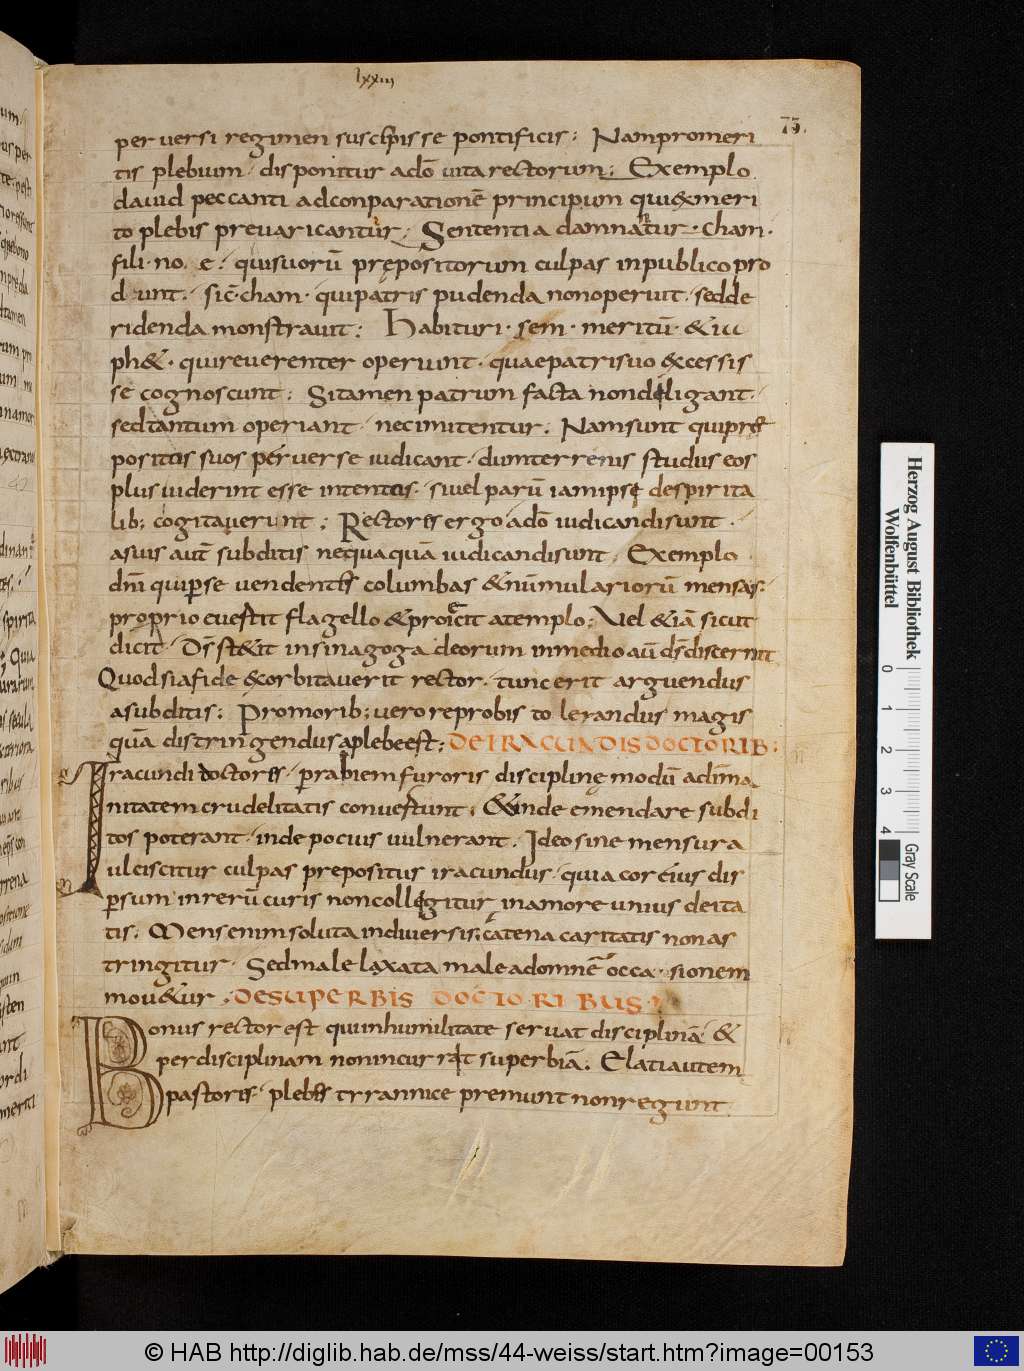 lxxiii
75.
perversi regimen suscepisse pontificis; Nam pro meri
tis plebium · disponitur a dō vita rectorum; Exemplo
david peccanti ad conparationē principum qui ex meri
to plebis prevaricantur; Sententia damnatur · cham ·
fili · no · e · qui suorū prępositorum culpas in publico pro
dunt · sic̄ · cham · qui patris pudenda non operuit · sed de
ridenda monstravit; Habituri · sem · meritū · & iu
ph& · qui reverenter operiunt · quae patri suo excessis
se cognoscunt; Si tamen patrum facta non diligant ·
sed tantum operiant · nec imitentur; Nam sunt qui pre
positos suos perverse iudicant · dum terrenis studiis eos
plus viderint esse intentos · si vel parū iam ipse de spirita
lib; cogitaverunt; Rectores ergo a dō iudicandi sunt ·
a suis aut̄ subditis nequaquā iudicandi sunt · Exemplo
dnī qui per se vendentes columbas & nūmulariorū mensas ·
proprio evertit flagello & proiecit a templo; Vel & iā sicut
dicit · Dś st&it in sinagoga deorum in medio aū dś discernit
Quod si a fide exorbitaverit rector · tunc erit arguendus
a subditis; Pro morib; vero reprobis tolerandus magis
quā distringendus a plebe est; DE IRACUNDIS DOCTORIB;
Iracundi doctores · per rabiem furoris disciplinę modū ad imma
nitatem crudelitatis convertunt; & unde emendare subdi
tos poterant · inde pocius vulnerant · Ideo sine mensura
ulciscitur culpas prepositus iracundus · quia cor eius dis
persum in rerū curis non colligitur in amore unius deita
tis; Mens enim soluta in diversis; catena caritatis non as
tringitur · Sed male laxata male ad omnē occa · sionem
mov&ur · DE SUPERBIS DOCTORIBUS ·
Bonus rector est qui in humilitate servat disciplinā · &
per disciplinam non incurrit superbiā; Elati autem
pastoris · plebes tyrannice premunt non regunt
Herzog August Bibliothek
Wolfenbüttel
0 1 2 3 4 Gray Scale
© HAB http://diglib.hab.de/mss/44-weiss/start.htm?image=00153